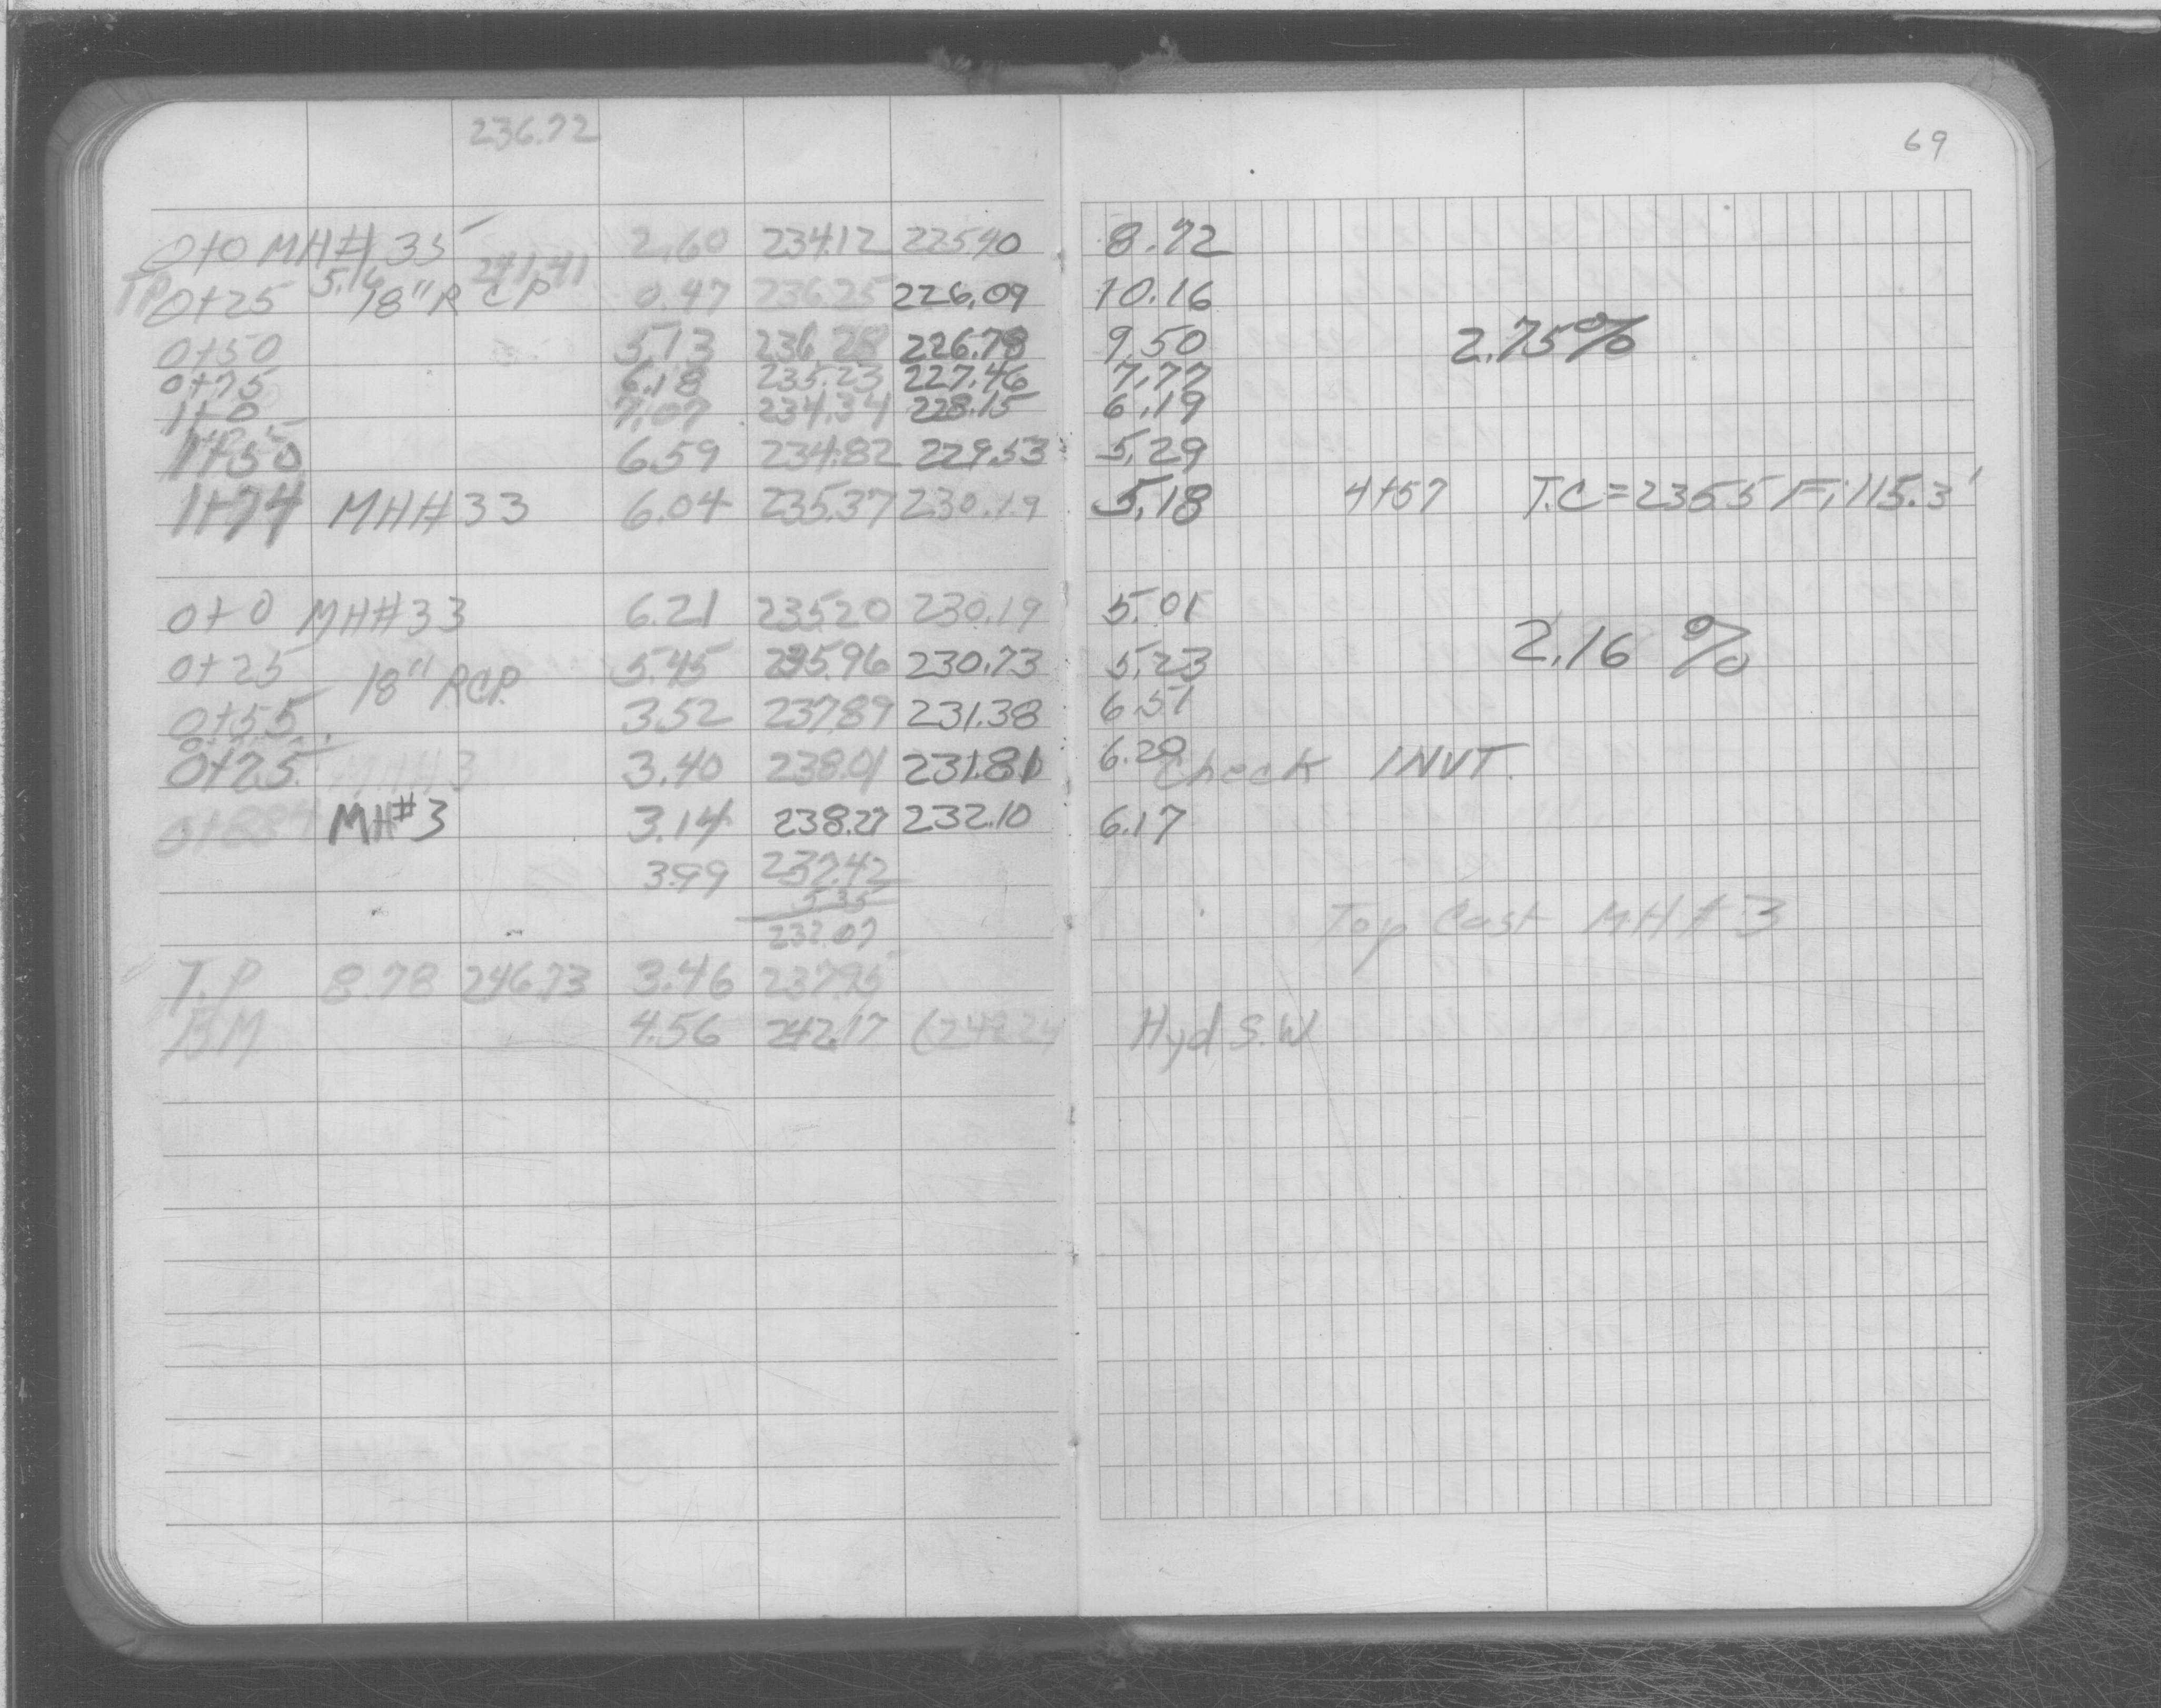 236.72
69
0+0 MH# 35 2.60 234.12 225.40 8.72
TP 5.16 241.41
0+25 18" RCP 0.47 236.25 226.09 10.16
0+50 5.13 236.28 226.78 9.50 2.75%
0+75 6.18 235.23 227.46 7.77
1+0 7.07 234.34 228.15 6.19
1+50 6.59 234.82 229.53 5.29
1+74 MH# 33 6.04 235.37 230.19 5.18 4+57 T.C = 235.5 Fill 5.3'
0+0 MH# 33 6.21 235.20 230.19 5.01
0+25 18" RCP. 5.45 235.96 230.73 5.23 2.16 %
0+55 3.52 237.89 231.38 6.51
0+75 MH# 3 3.40 238.01 231.81 6.20 Check INVT.
0+884 MH# 3 3.14 238.27 232.10 6.17
3.99 237.42
5.35 Top Cast MH # 3
232.07
T.P 8.78 246.73 3.46 237.95
BM 4.56 242.17 (242.24 Hyd S.W